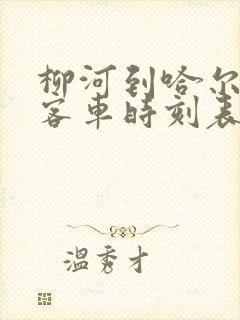 柳河到哈尔
客车时刻表
温秀才